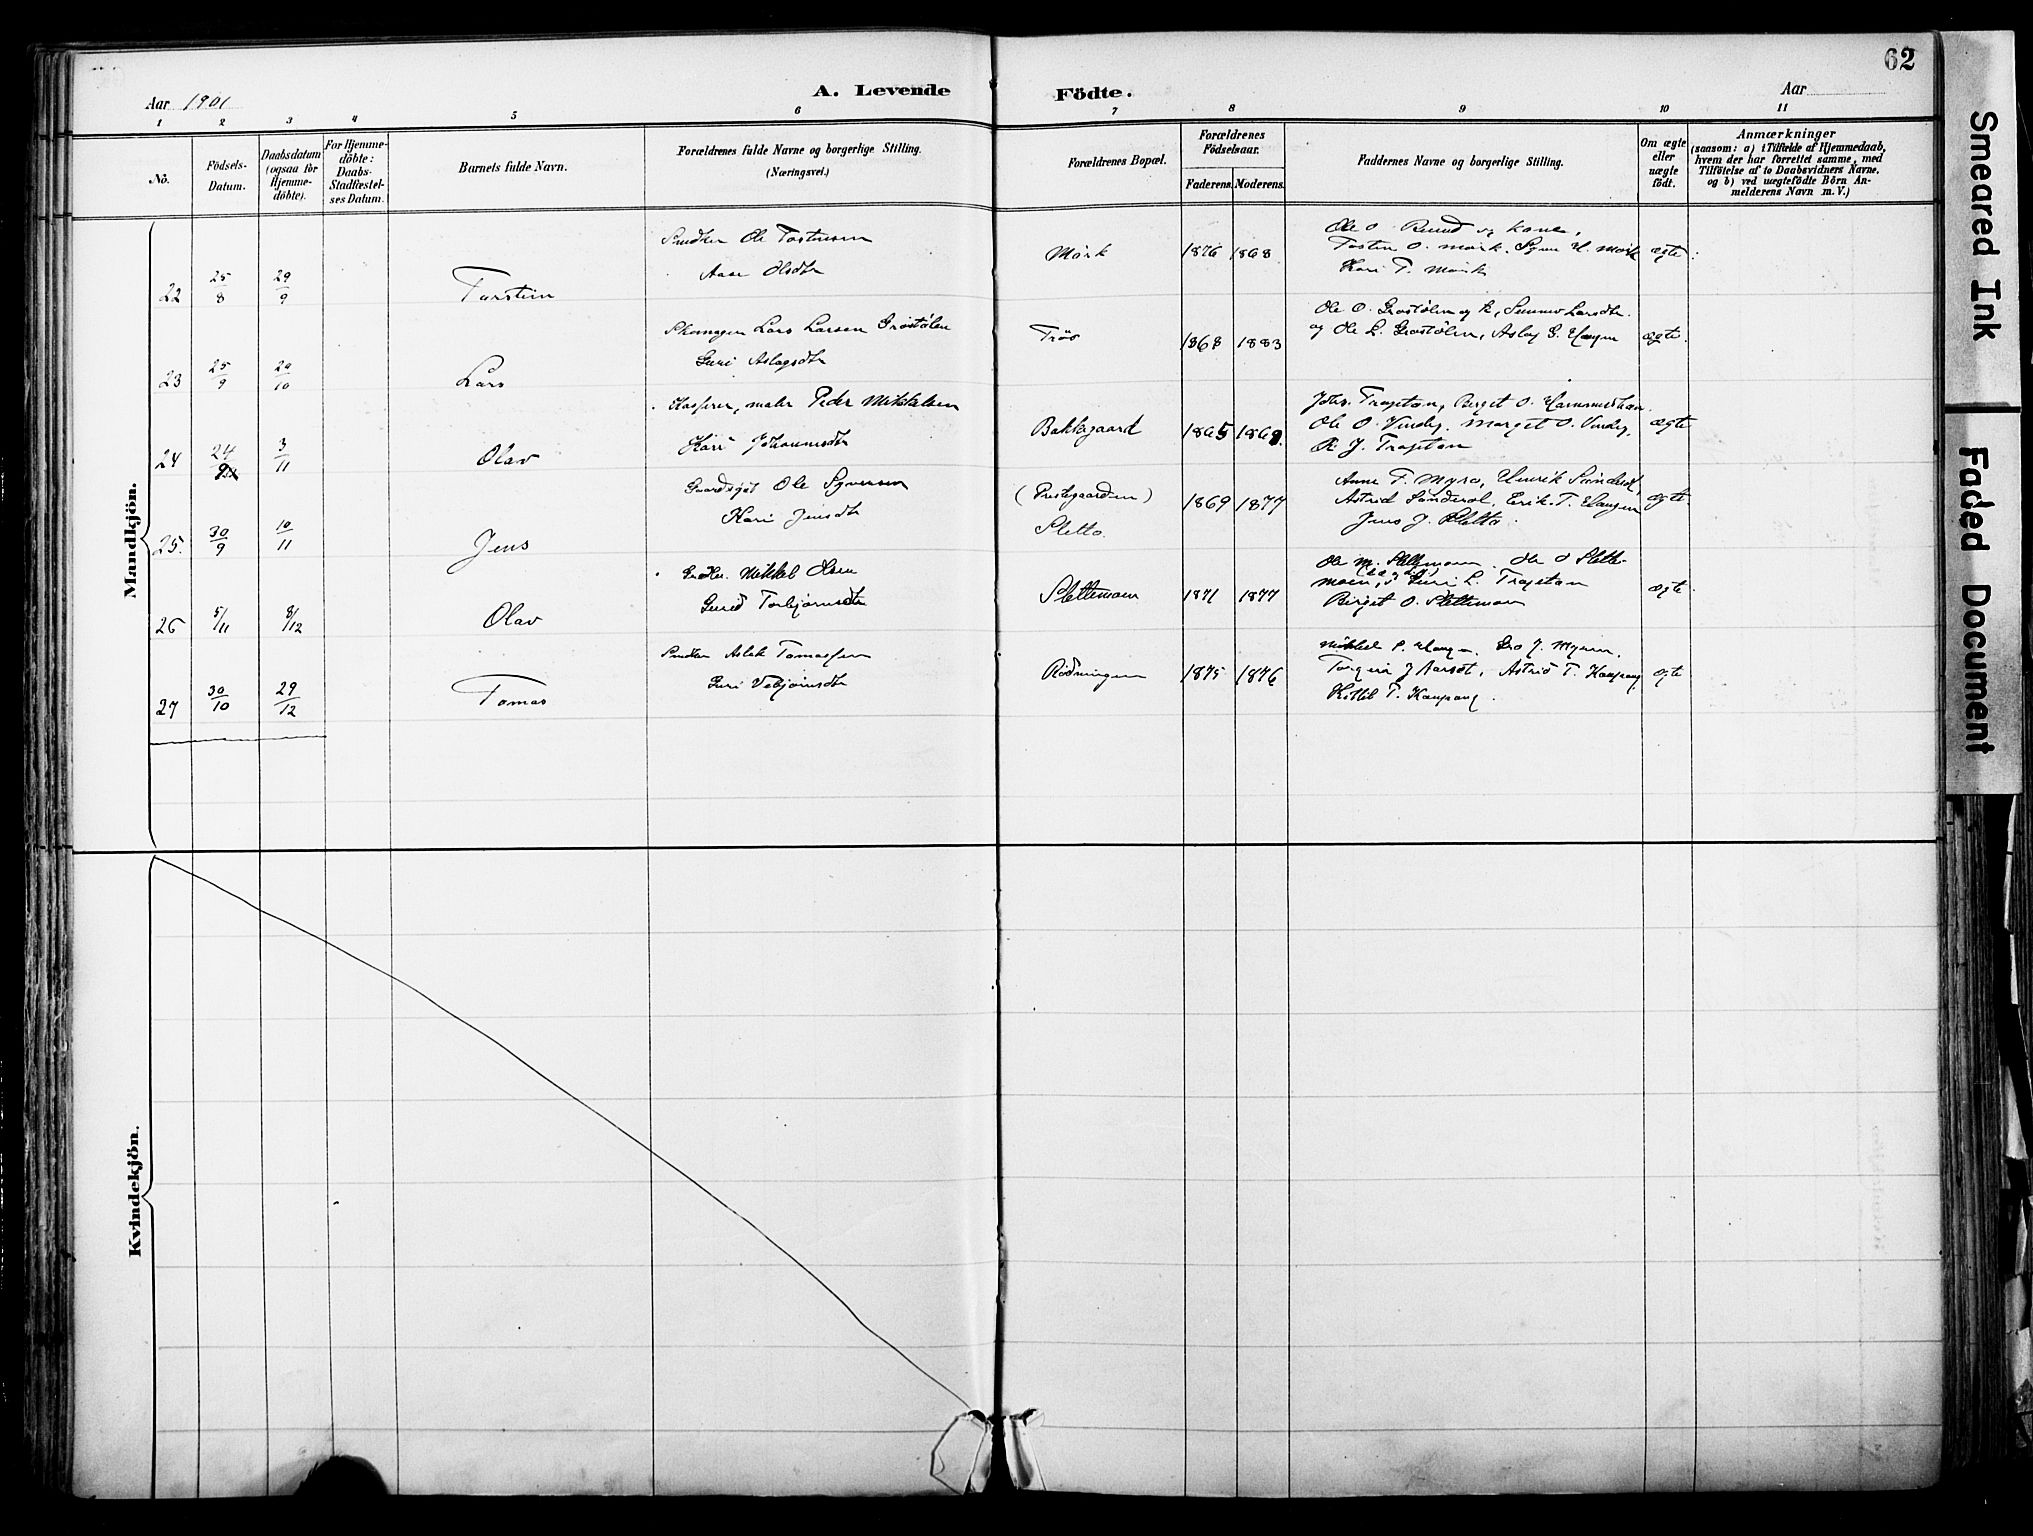 62
Aar 1901
A. Levende Födte.
Aar
1 2 3 4 5 6 7 8 9 10 11
No.
Födsels-
Datum.
Daabsdatum
(ogsaa for
Hjemme-
döbte).
For Hjemme-
döbte:
Daabs-
Stadfæstel-
ses Datum.
Barnets fulde Navn.
Forældrenes fulde Navne og borgerlige Stilling.
(Næringsvei.)
Forældrenes Bopæl.
Forældrenes
Födselsaar.
Faderens.
Moderens.
Faddernes Navne og borgerlige Stilling.
Om ægte
eller
uægte
födt.
Anmærkninger
(saasom: a) i Tilfælde af Hjemmedaab,
hvem der har forrettet samme, med
Tilföielse af to Daabsvidners Navne,
og b) ved uægtefödte Börn An-
melderens Navn m. V.)
Mandkjön.
22 25/8 29/9 Torstein
Ole Tostensen
Aase Olsdtr
Mørk 1876 1868
Ole O. Ruud og kone,
Tosten O. Mørk. H. Mørk
Kari T. Mørk
ægte.
23 25/9 29/10 Lars
Lars Larsen Grøstølen
Guri Aslagsdtr
Trøo 1868 1883
Ole O. Grøstølen og k, Sunnev Larsdtr.
og Ole L. Grøstølen, Aslag G. Haugen
ægte.
24 24/9 3/11 Olav
Kasserer, maler Peder Mikkelsen
Kari Johannesdtr
Bakkegaard 1865 1869.
Johs. Trageton, Birget O.
Ole O. Vindeg. Marget O. Vindeg,
O. J. Trageton
ægte
25. 30/9 10/11 Jens
Ole Syversen
Kari Jensdtr
(Prestegaarden)
Sletto.
1869 1877
Anne T. Myro, Henrik Sønderol,
Astrid Sønderol, Eerik T. Haugen
Jens J. Sletto.
ægte.
26 5/11 8/12 Olav
Mikkel Olsen
Gunild Torbjørnsdtr
Slettemoen 1871 1877
Ole M. Slettemoen. Ole O Slette-
moen, Guri L. Trageton
Birget O. Slettemoen
ægte.
27 30/10 29/12 Tomas
Aslak Tomassen
Guri Vebjørnsdtr
Rødningen 1875 1876
Mikkel P. Haugen, Gro J. Myren,
J Aarset, Astrid T. Kaupang
Kittil T. Kaupang.
ægte
Kvindekjön.
Smeared Ink
Faded Document